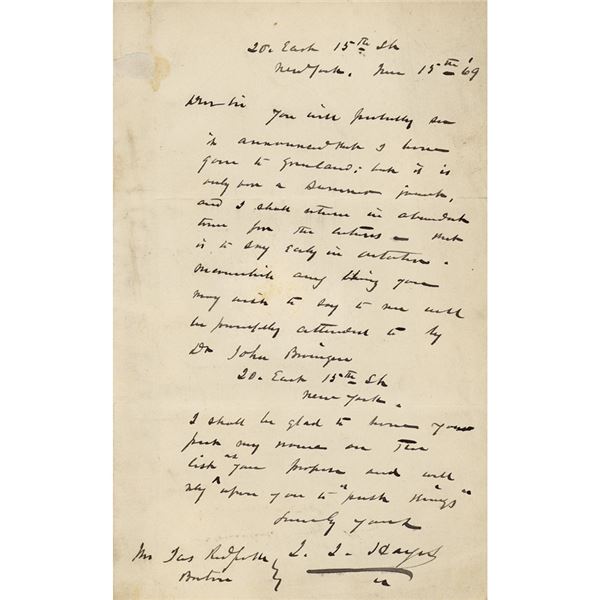 20. East 15th St
New York. June 15th '69
Dear Sir You will probably see
it announced that I have
gone to Greenland; but it is
only on a Summer jaunt,
and I shall return in abundant
time for the lectures - that
is to say Early in October.
Meanwhile any thing you
may wish to say to me will
be promptly attended to by
Dr John
20. East 15th St
New York.
I shall be glad to have you
put my name on the
list as you propose and will
rely upon you to "push things"
Truly yours
I. I. Hayes
Mr Jas Redpath
Boston